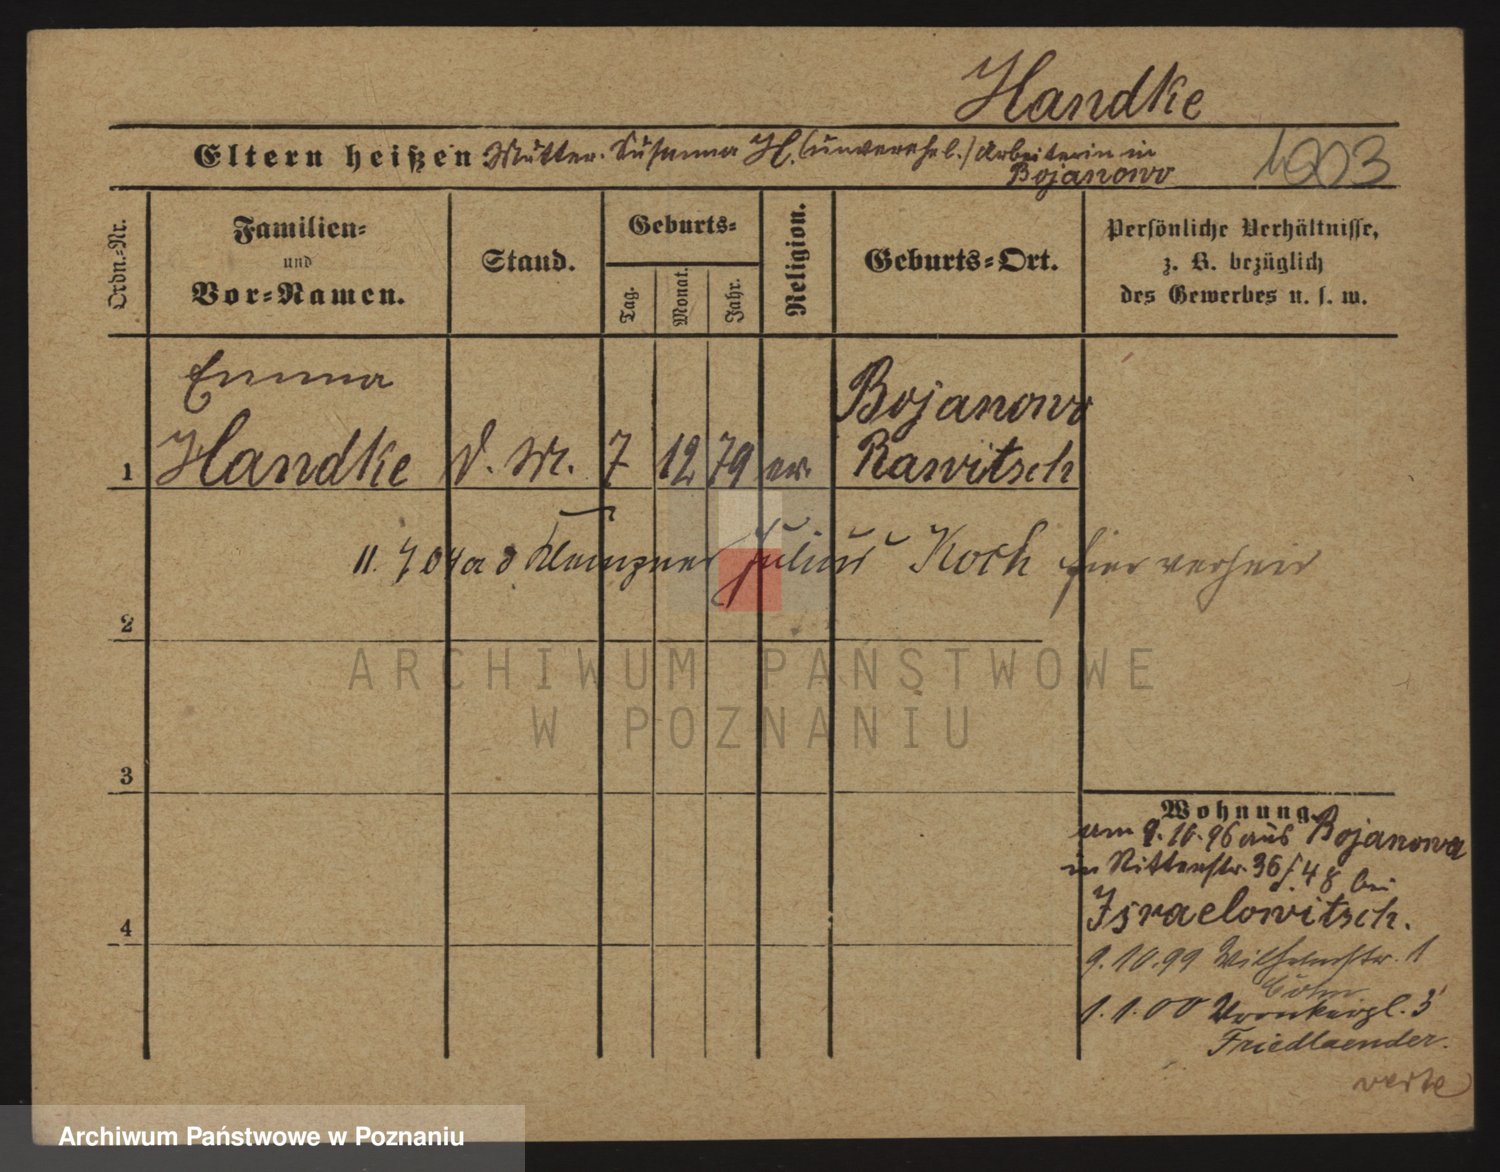 Handke
Eltern heißen Mutter. Susanna H. (unverehel.) Arbeiterin in
Bojanowo
1003
Ordn.-Nr.
Familien-
und
Vor-Namen.
Stand.
Geburts-
Tag.
Monat.
Jahr.
Religion.
Geburts-Ort.
Persönliche Verhältnisse,
z. B. bezüglich
des Gewerbes u. s. w.
Emma
Bojanowo
1 Handke d. M. 7 12 79 ev Rawitsch
11. 7 04 a d Klempner Julius Koch hier verheir
2
ARCHIWUM PAŃSTWOWE
W POZNANIU
3
Wohnung
am 9.10.96 aus Bojanowo
in Ritterstr. 36/48 bei
4
Israelowitsch.
9.10.99 Wilhelmstr. 1
1.1.00 3
Friedlaender.
verte
Archiwum Państwowe w Poznaniu